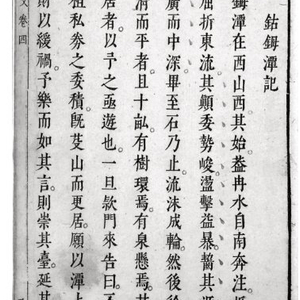 鈷鉧潭記
鉧潭在西山西其始蓋冉水自南奔注。
屈折東流其顚委勢峻盪擊益暴齧其涯
廣而中深畢至石乃止流沫成輪然後徐
清而平者且十畝有樹環焉。有泉懸焉。其
居者以予之亟遊也。一旦款門來告曰不
租私券之委積旣芟山而更居願以潭上
則以緩禍。予樂而如其言。則崇其臺延其
文卷四